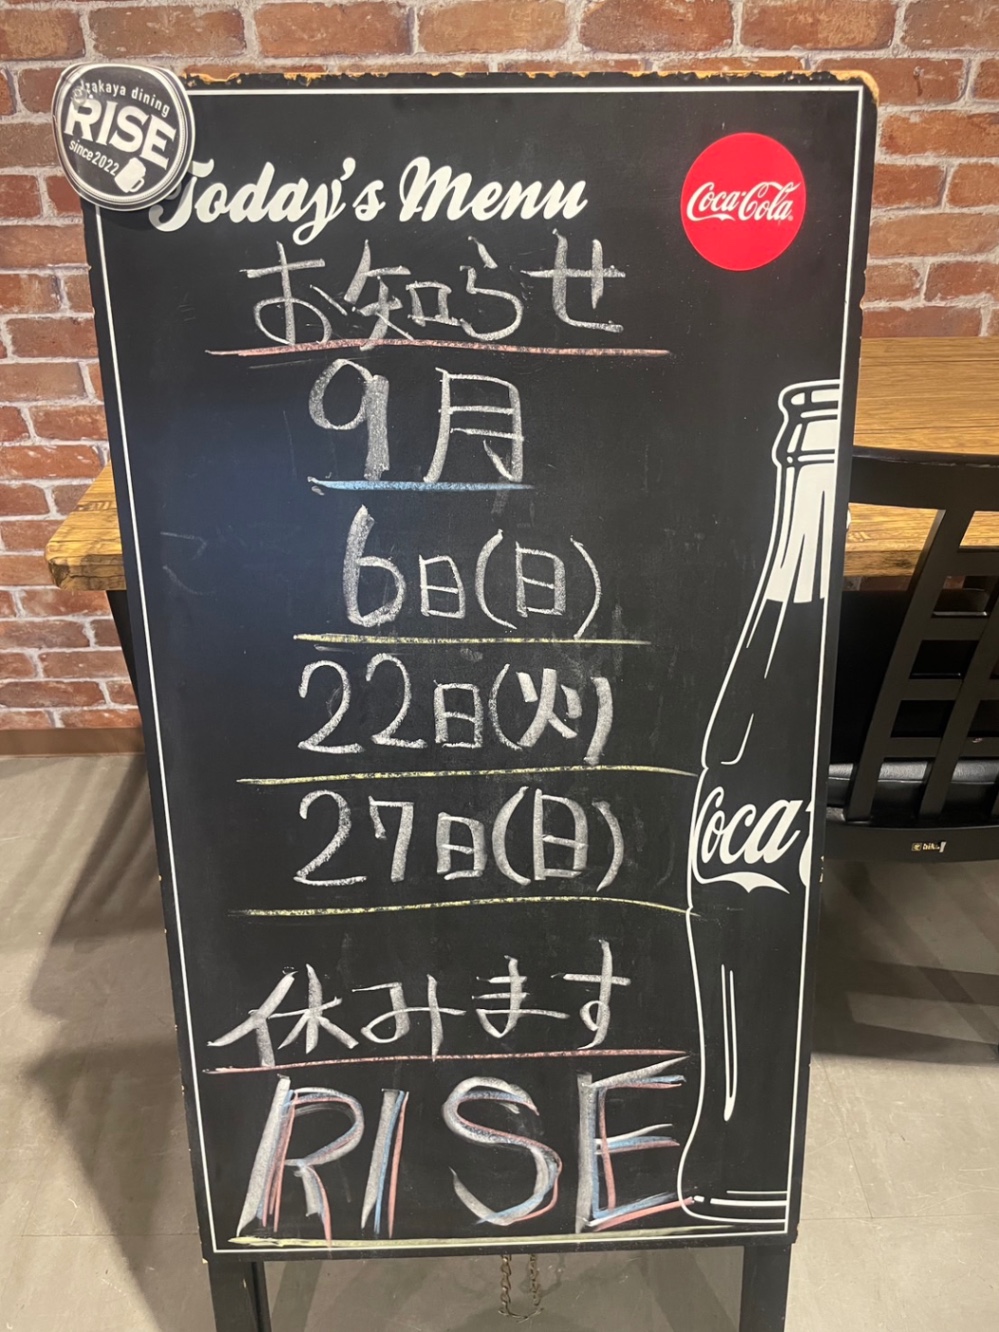 izakaya dining
RISE
since2022
Today's Menu
Coca-Cola
お知らせ
9月
6日(日)
22日(火)
27日(日)
Coca
休みます
RISE